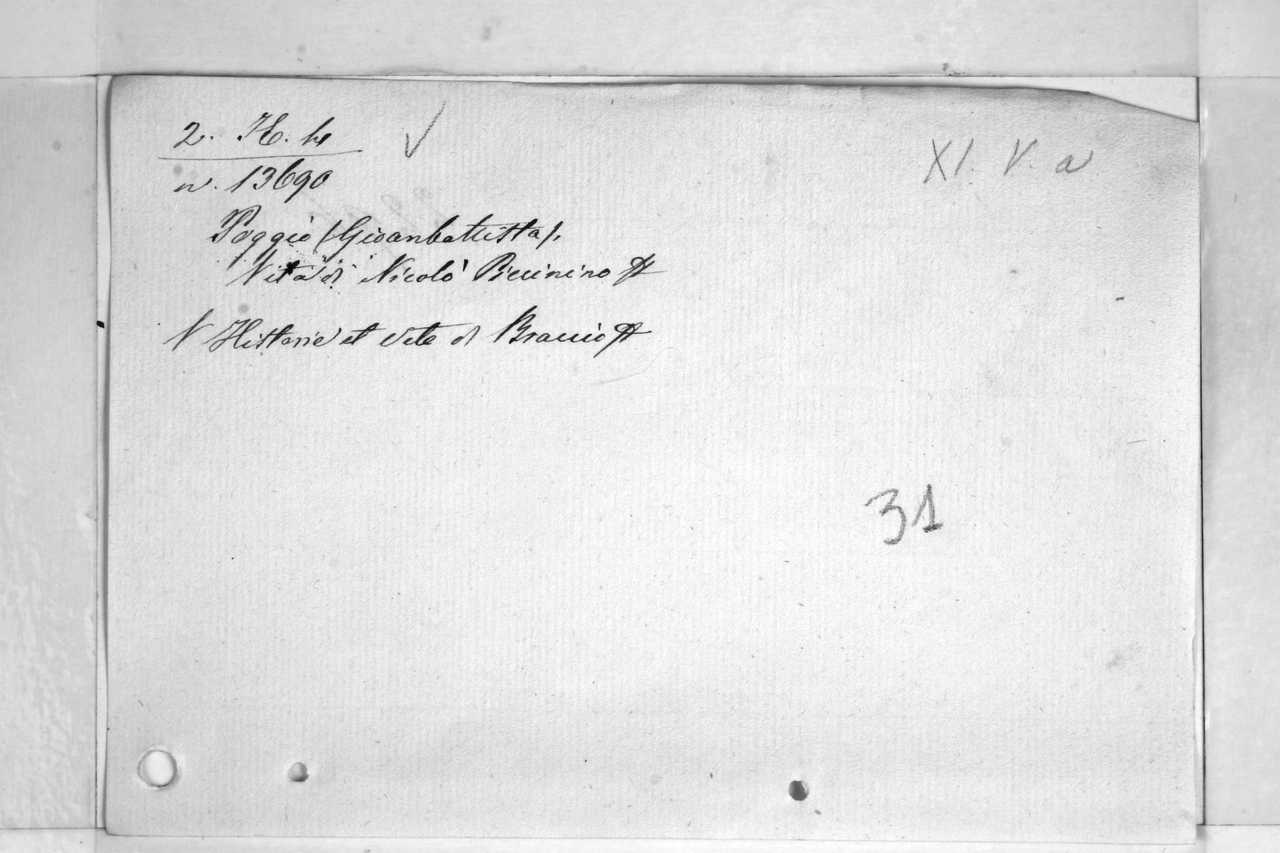 2. H. 4
XI. V. a
n. 13690
Poggio (Gioanbattista).
Vita di Nicolò Piccinino
V Historie et vite di Braccio
31